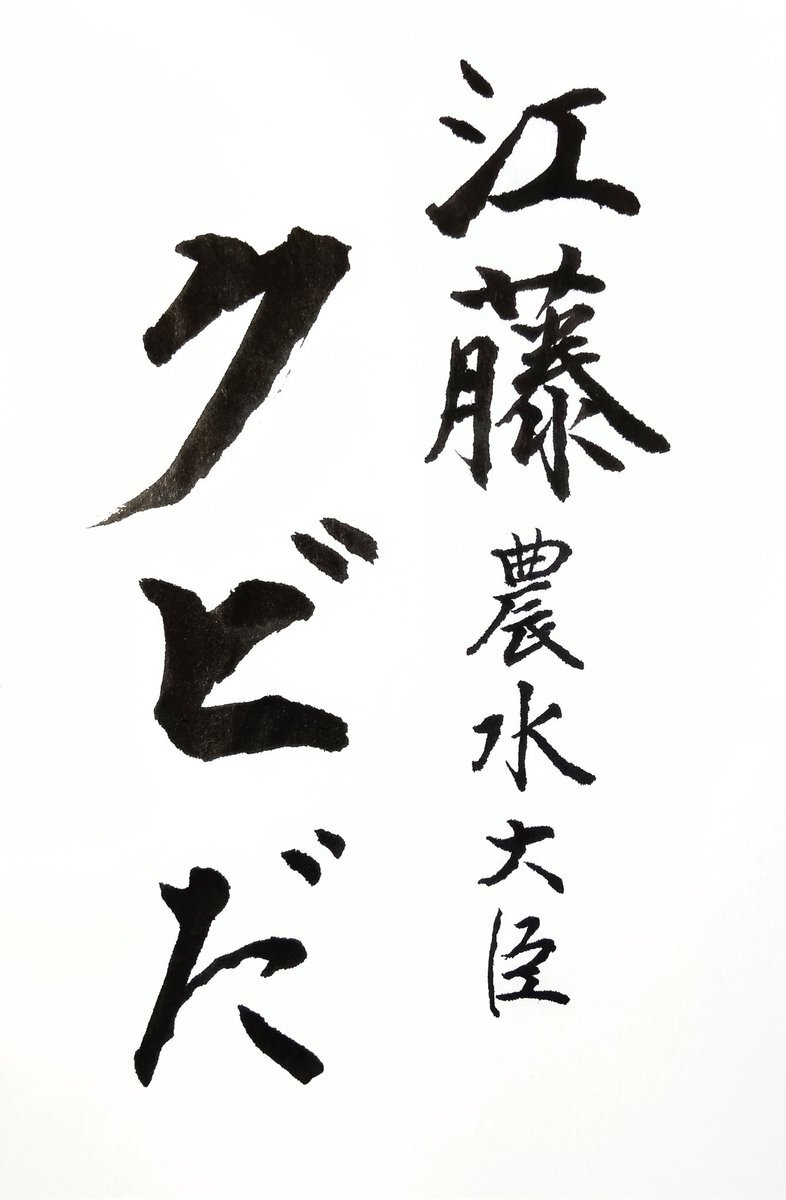 江藤農水大臣
クビだ